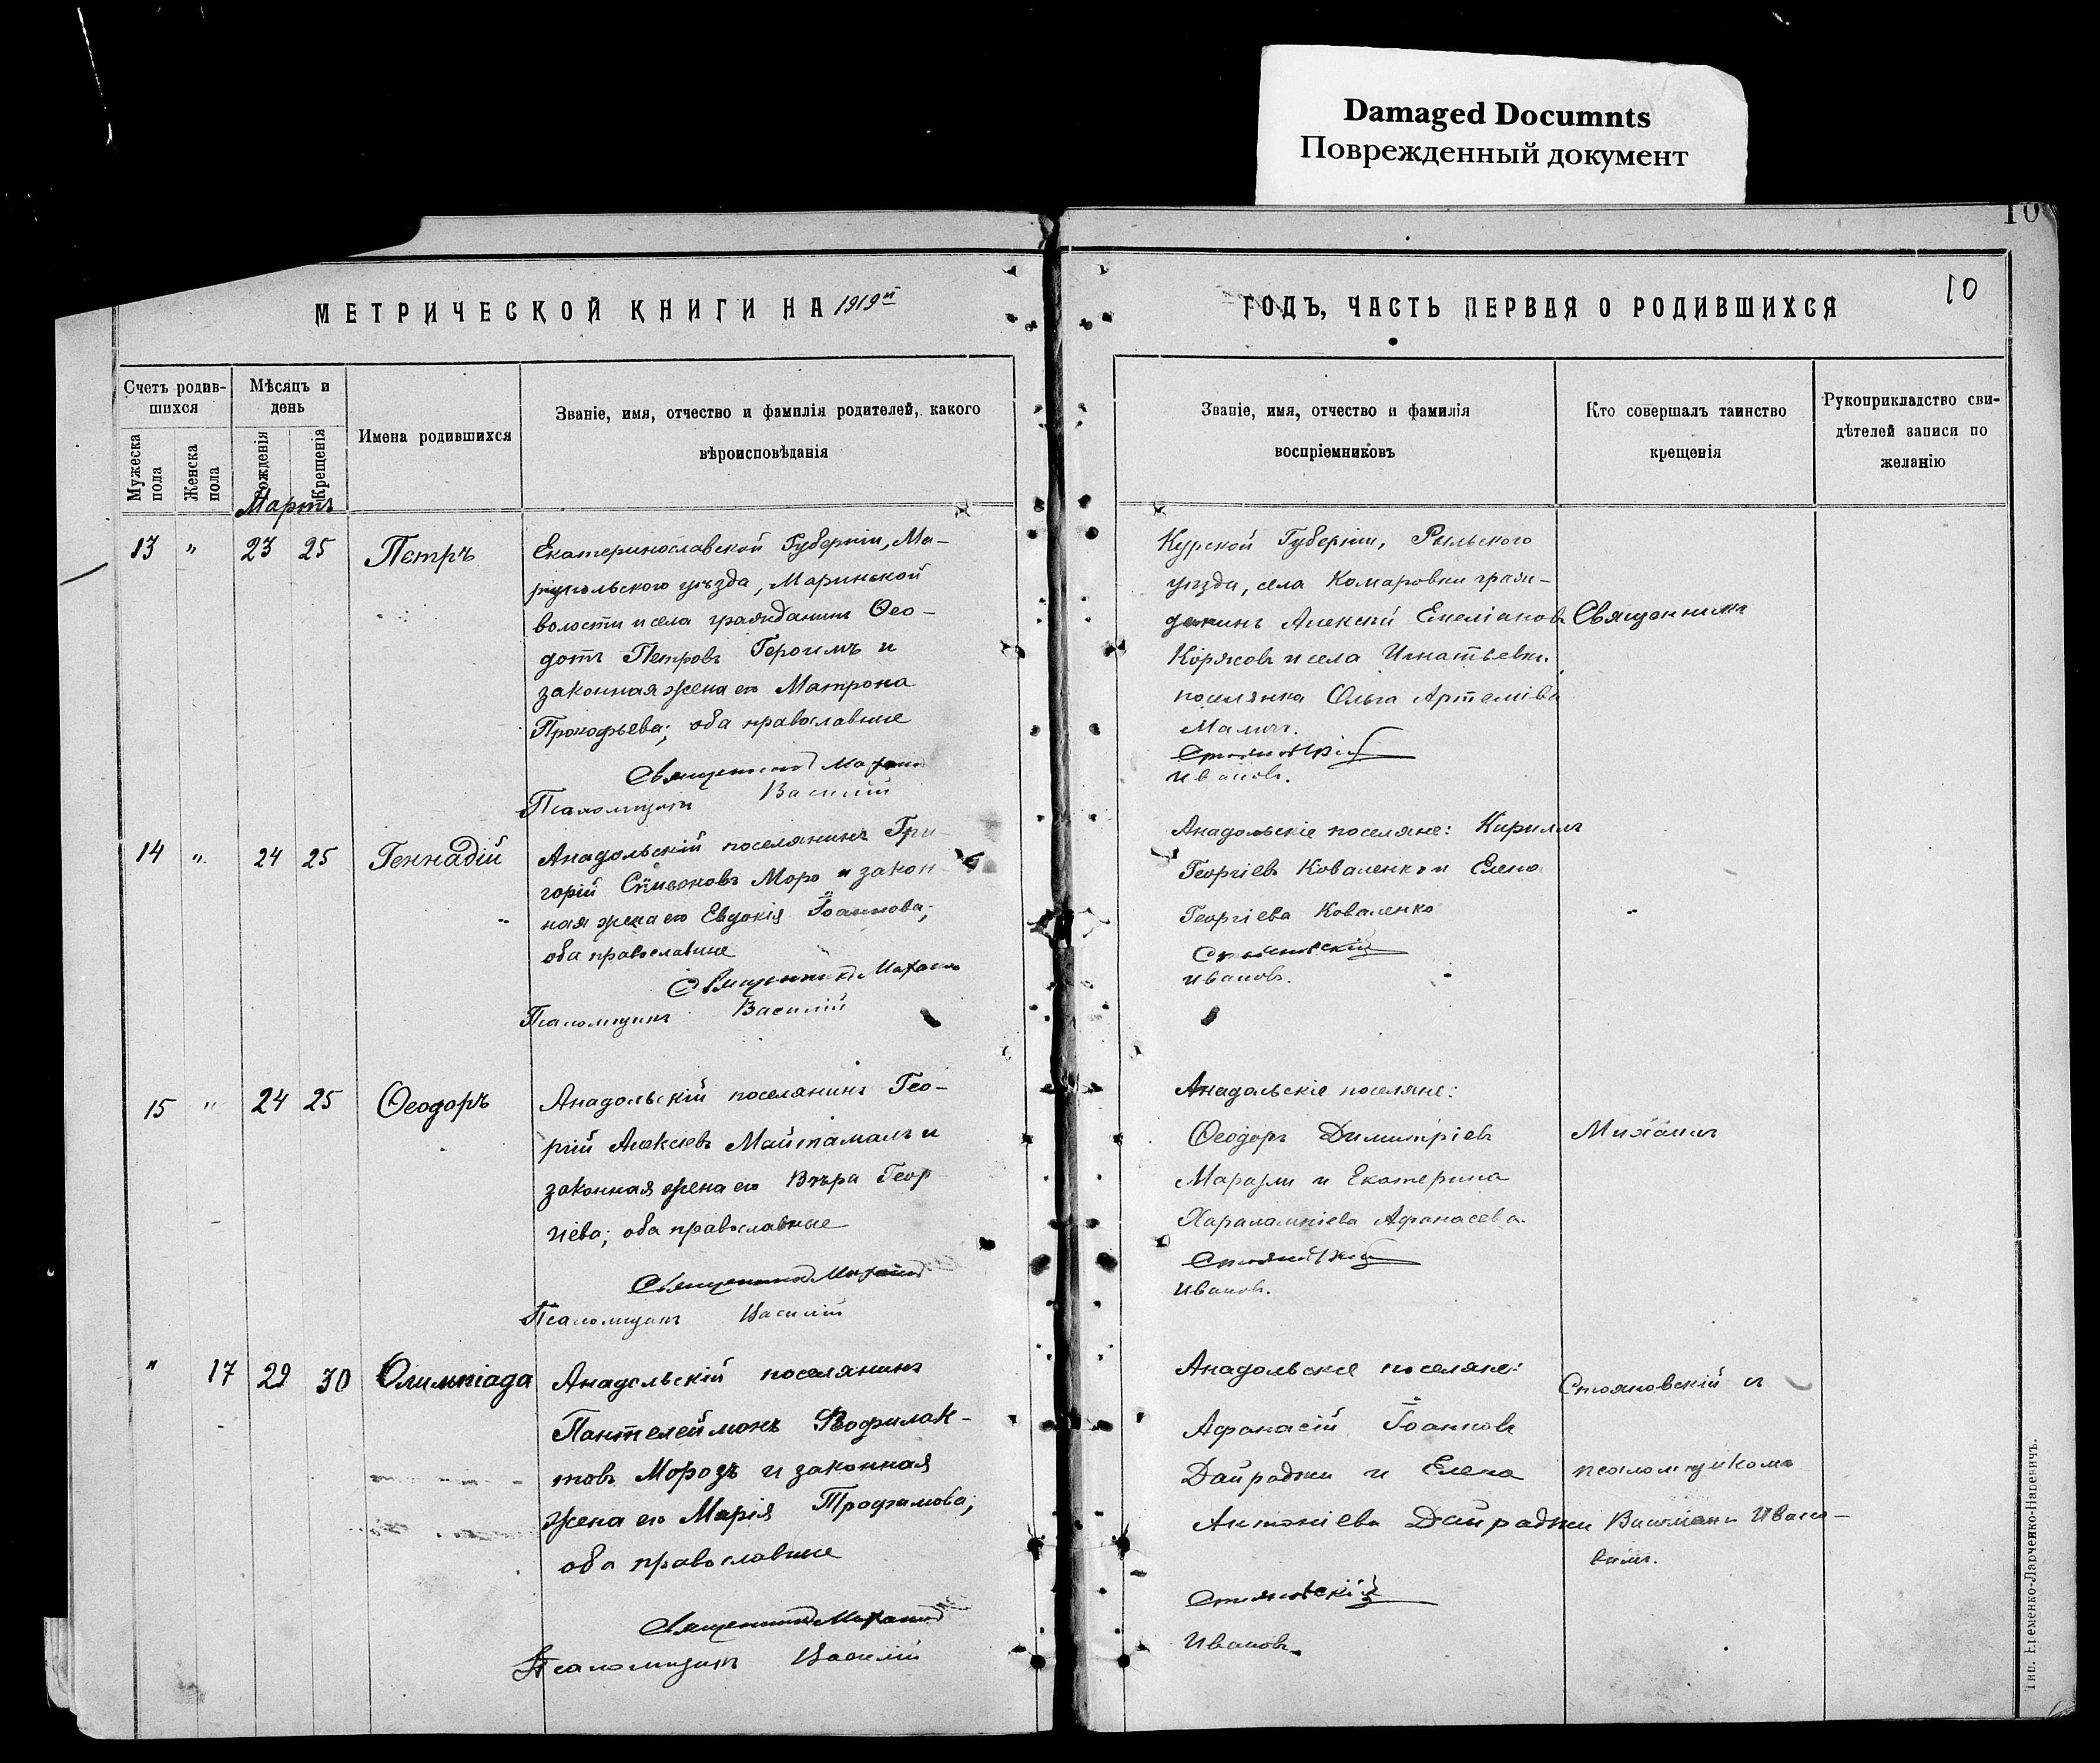 Damaged Documnts
Поврежденный документ
10
10
МЕТРИЧЕСКОЙ КНИГИ НА 1919й
ГОДЪ, ЧАСТЬ ПЕРВАЯ О РОДИВШИХСЯ
Счетъ родив-
шихся
Мужеска
пола
Женска
пола
Мѣсяцъ и
день
Рожденія
Крещенія
Имена родившихся
Званіе, имя, отчество и фамилія родителей, какого
вѣроисповѣданія
Званіе, имя, отчество и фамилія
воспріемниковъ
Кто совершалъ таинство
крещенія
Рукоприкладство сви-
дѣтелей записи по
желанію
Мартъ
13 " 23 25 Петръ
Екатеринославской Губерніи, Ма-
ріупольского уѣзда, Маринской
волости и села гражданинъ Ѳео-
дотъ Петровъ Герогимъ и
законная жена его Матрона
Прокофьева; оба православные
Священникъ Михаилъ
Псаломщикъ Василій
Курской Губерніи, Рыльского
уѣзда, села Комаровки граж-
данинъ Алексѣй Емеліановъ
Коряковъ и села Игнатьевки
поселянка Ольга Артеміева
Малич.
Стояновскій
Ивановъ.
14 " 24 25 Геннадій
Анадольскій поселянинъ Гри-
горій Симеоновъ Моро и закон-
ная жена его Евдокія Іоаннова;
оба православные
Священникъ Михаилъ
Псаломщикъ Василій
Анадольскіе поселяне: Кириллъ
Георгіевъ Коваленко и Елена
Георгіева Коваленко
Стояновскій
Ивановъ.
15 " 24 25 Ѳеодоръ
Анадольскій поселянинъ Гео-
ргій Алексѣевъ Майтамалъ и
законная жена его Вѣра Геор
гіева; оба православные
Священникъ Михаилъ
Псаломщикъ Василій
Анадольскіе поселяне:
Ѳеодоръ Димитріевъ
и Екатерина
Харалампіева Афанасева.
Стояновскій
Ивановъ.
" 17 29 30 Олимпіада
Анадольскій поселянинъ
Пантелеймонъ Ѳеофилак-
товъ Морозъ и законная
жена его Марія Трофимова;
оба православные
Священникъ Михаилъ
Псаломщикъ Василій
Анадольскіе поселяне:
Афанасій Іоанновъ
Дайраджи и Елена
Антоніева Дайраджи
Стояновскій
Ивановъ.
Священникъ
Михаилъ
Стояновскій и
псаломщикомъ
Василіемъ Ивано-
вымъ.
Тип. Еременко-Ларченко-Наревичъ.